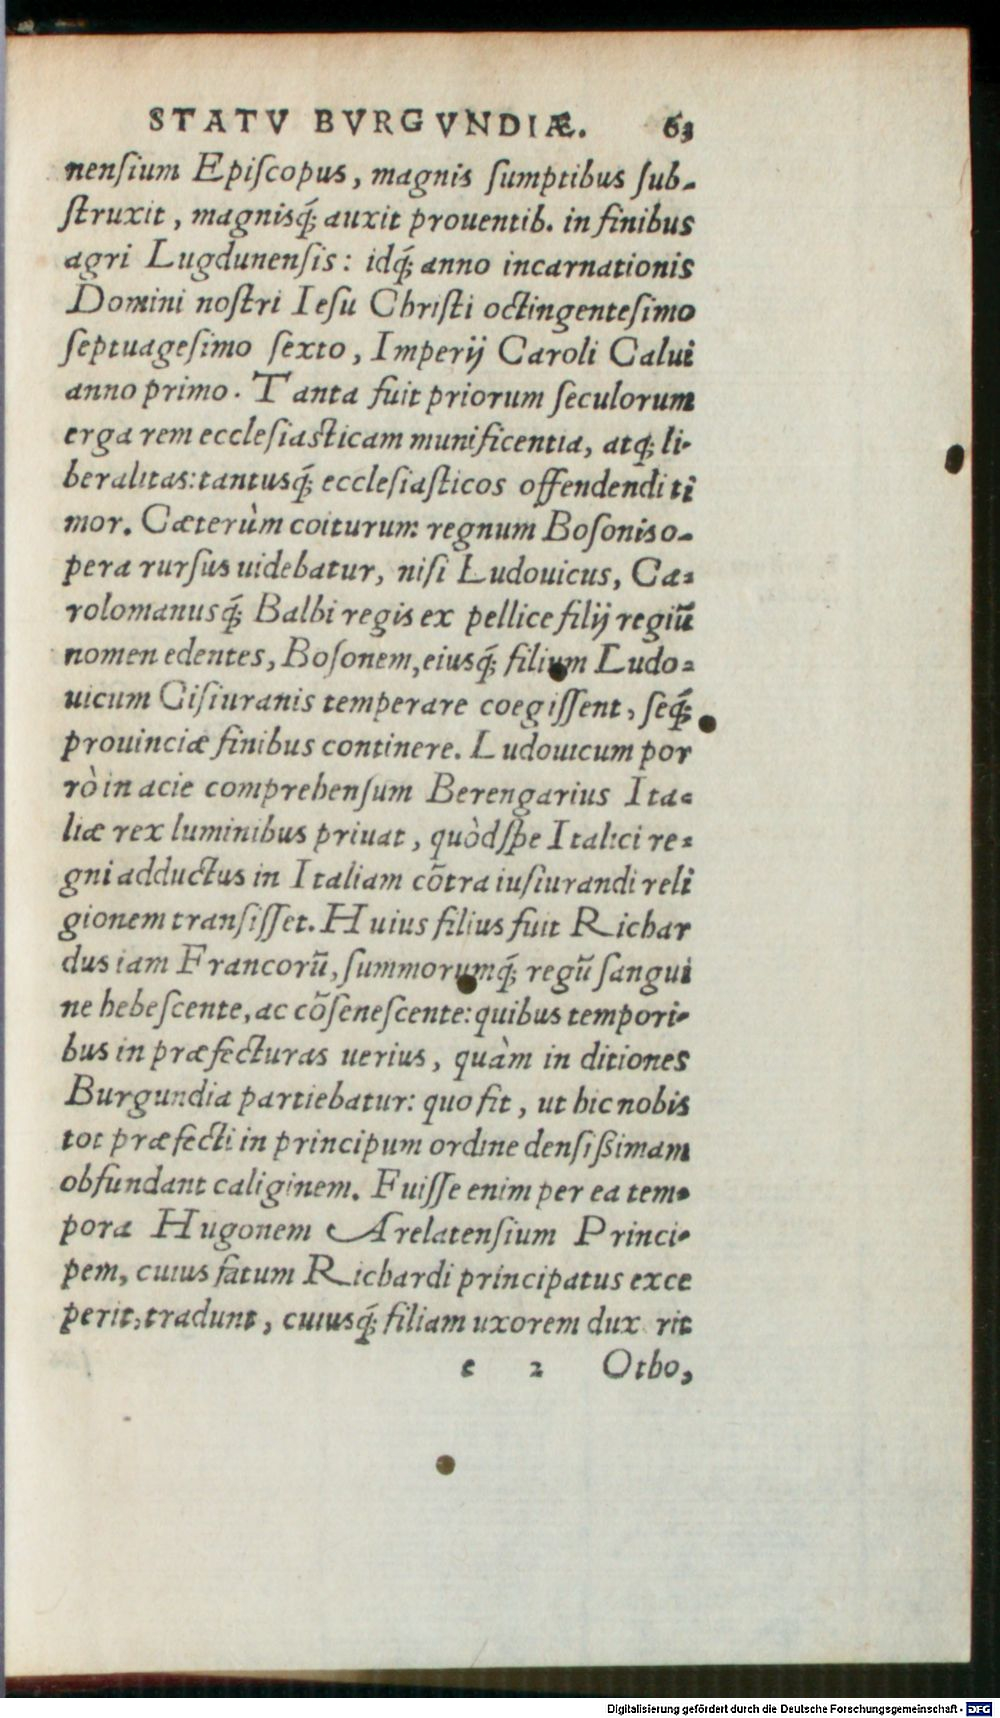 STATV BVRGVNDIÆ. 63
nensium Episcopus, magnis sumptibus sub-
struxit, magnisq́; auxit prouentib. in finibus
agri Lugdunensis: idq́; anno incarnationis
Domini nostri Iesu Christi octingentesimo
septuagesimo sexto, Imperij Caroli Calui
anno primo. Tanta fuit priorum seculorum
erga rem ecclesiasticam munificentia, atq; li-
beralitas: tantusq́; ecclesiasticos offendendi ti
mor. Cæterùm coiturum regnum Bosonis o-
pera rursus uidebatur, nisi Ludouicus, Ca-
rolomanusq́; Balbi regis ex pellice filij regiū
nomen edentes, Bosonem, eiusq́; filium Ludo-
uicum Gisiuranis temperare coegissent, seq́;
prouinciæ finibus continere. Ludouicum por
rò in acie comprehensum Berengarius Ita-
liæ rex luminibus priuat, quòd spe Italici re-
gni adductus in Italiam cōtra iusiurandi reli
gionem transisset. Huius filius fuit Richar
dus iam Francorū, summorumq́; regū sangui
ne hebescente, ac cōsenescente: quibus tempori-
bus in præfecturas uerius, quàm in ditiones
Burgundia partiebatur: quo fit, ut hic nobis
tot præfecti in principum ordine densißimam
obfundant caliginem. Fuisse enim per ea tem-
pora Hugonem Arelatensium Princi-
pem, cuius fatum Richardi principatus exce
perit, tradunt, cuiusq́; filiam uxorem dux rit
e 2 Otho,
Digitalisierung gefördert durch die Deutsche Forschungsgemeinschaft - DFG